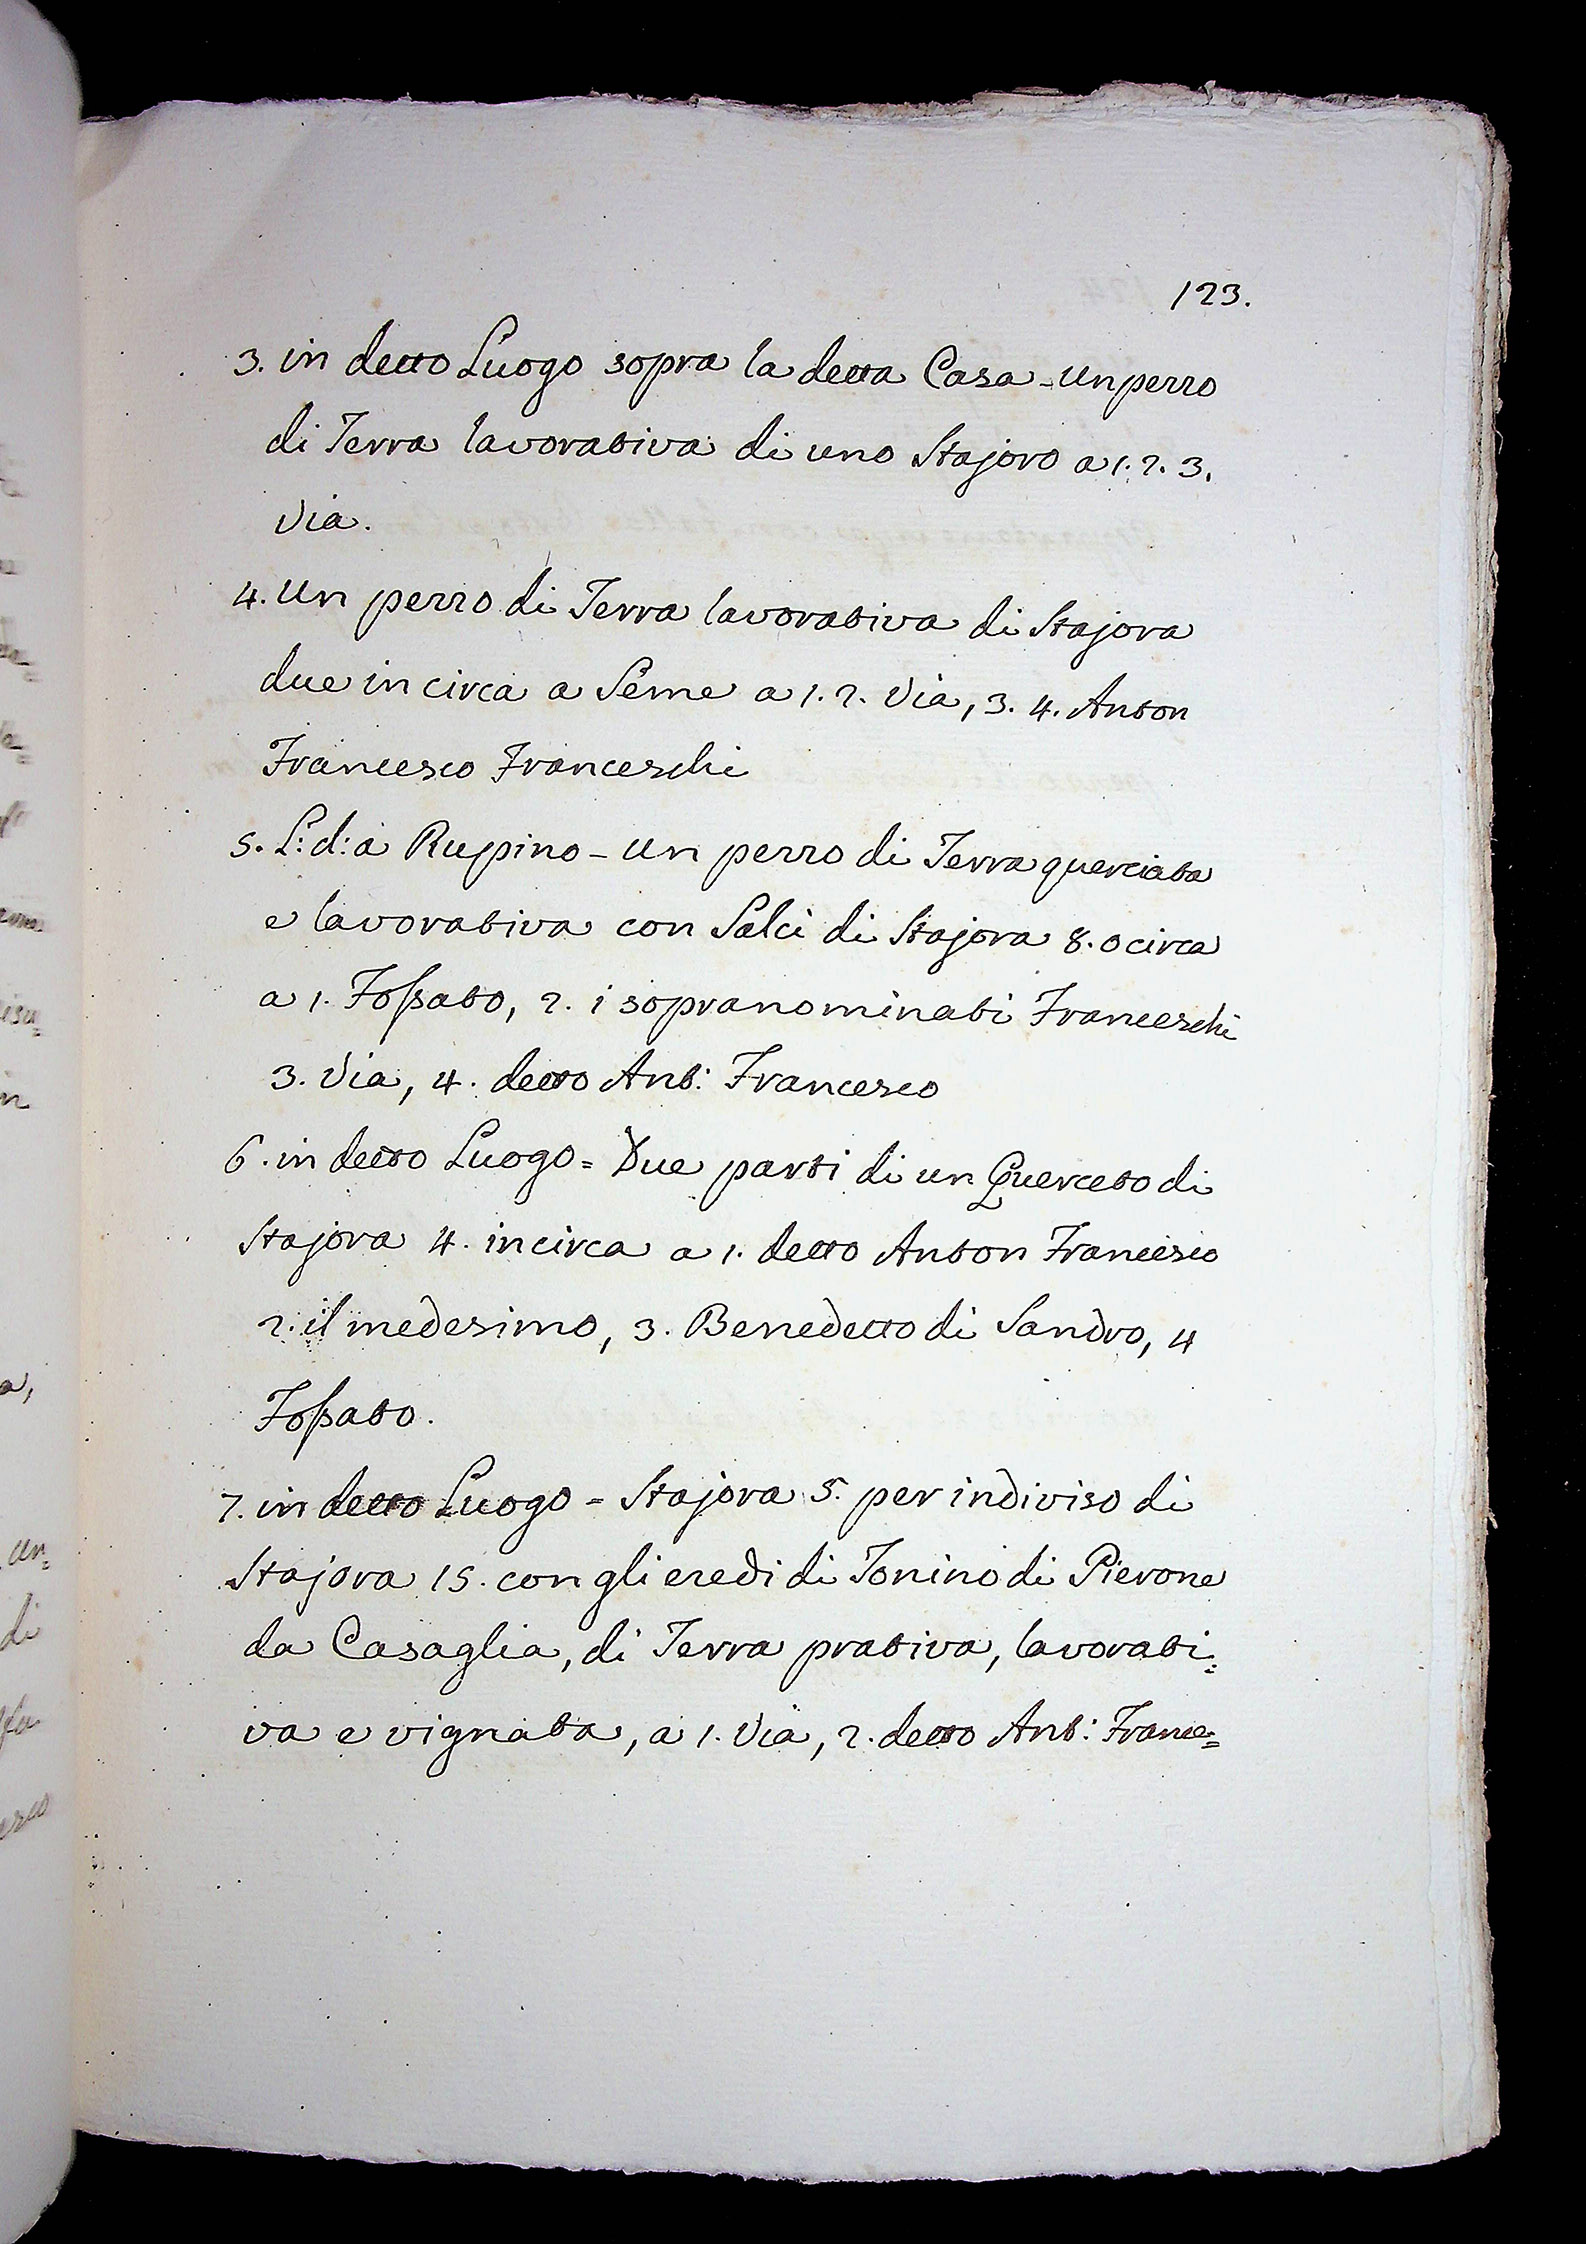 123.
3. in detto Luogo sopra la detta Casa - Un pezzo
di Terra lavorativa di uno Stajoro a 1. 2. 3.
Via.
4. Un pezzo di Terra lavorativa di Stajora
due in circa a Seme a 1. 2. Via, 3. 4. Anton
Francesco Franceschi
5. L: d: a Rupino - Un pezzo di Terra querciata
e lavorativa con Salci di Stajora 8. o circa
a 1. Fossato, 2. i sopranominati Franceschi
3. Via, 4. detto Ant: Francesco
6. in detto Luogo = Due parti di un Querceto di
Stajora 4. incirca a 1. detto Anton Francesco
2. il medesimo, 3. Benedetto di Sandro, 4
Fossato.
7. in detto Luogo = Stajora 5. per indiviso di
Stajora 15. con gli eredi di Tonino di Pierone
da Casaglia, di Terra prativa, lavorati=
va e vignata, a 1. Via, 2. detto Ant: France=